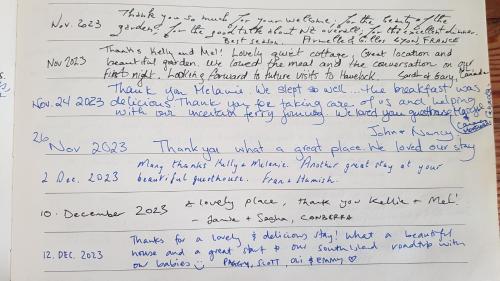 Thank you so much for your welcome, for the beauty of the
Nov. 2023 garden, for the good talk about NZ overall, for the excellent dinner.
Best season. Armelle & Gilles LYON, FRANCE
Nov 2023 Thanks Kelly and Mel! Lovely quiet cottage. Great location and
beautiful garden. We loved the meal and the conversation on our
first night. Looking forward to future visits to Havelock. & Gary, Canada
Thank you Melanie. We slept so well... the breakfast was
Nov. 24 2023 delicious Thank you for taking care of us and helping
with our uncertain ferry journey. We loved your
John & Nancy
26 Nov 2023 Thank you what a great place. We loved our stay
2 Dec. 2023 Many thanks Kelly & Melanie. Another great stay at your
beautiful guesthouse. Fran & Hamish.
10. December 2023 A lovely place, thank you Kellie & Mel!
- Jamie & Sasha, CANBERRA
Thanks for a lovely & delicious stay! What a beautiful
12. DEC. 2023 house and a great start to our south island roadtrip with
our babies PEGGY, SCOTT, Oli & EMMY